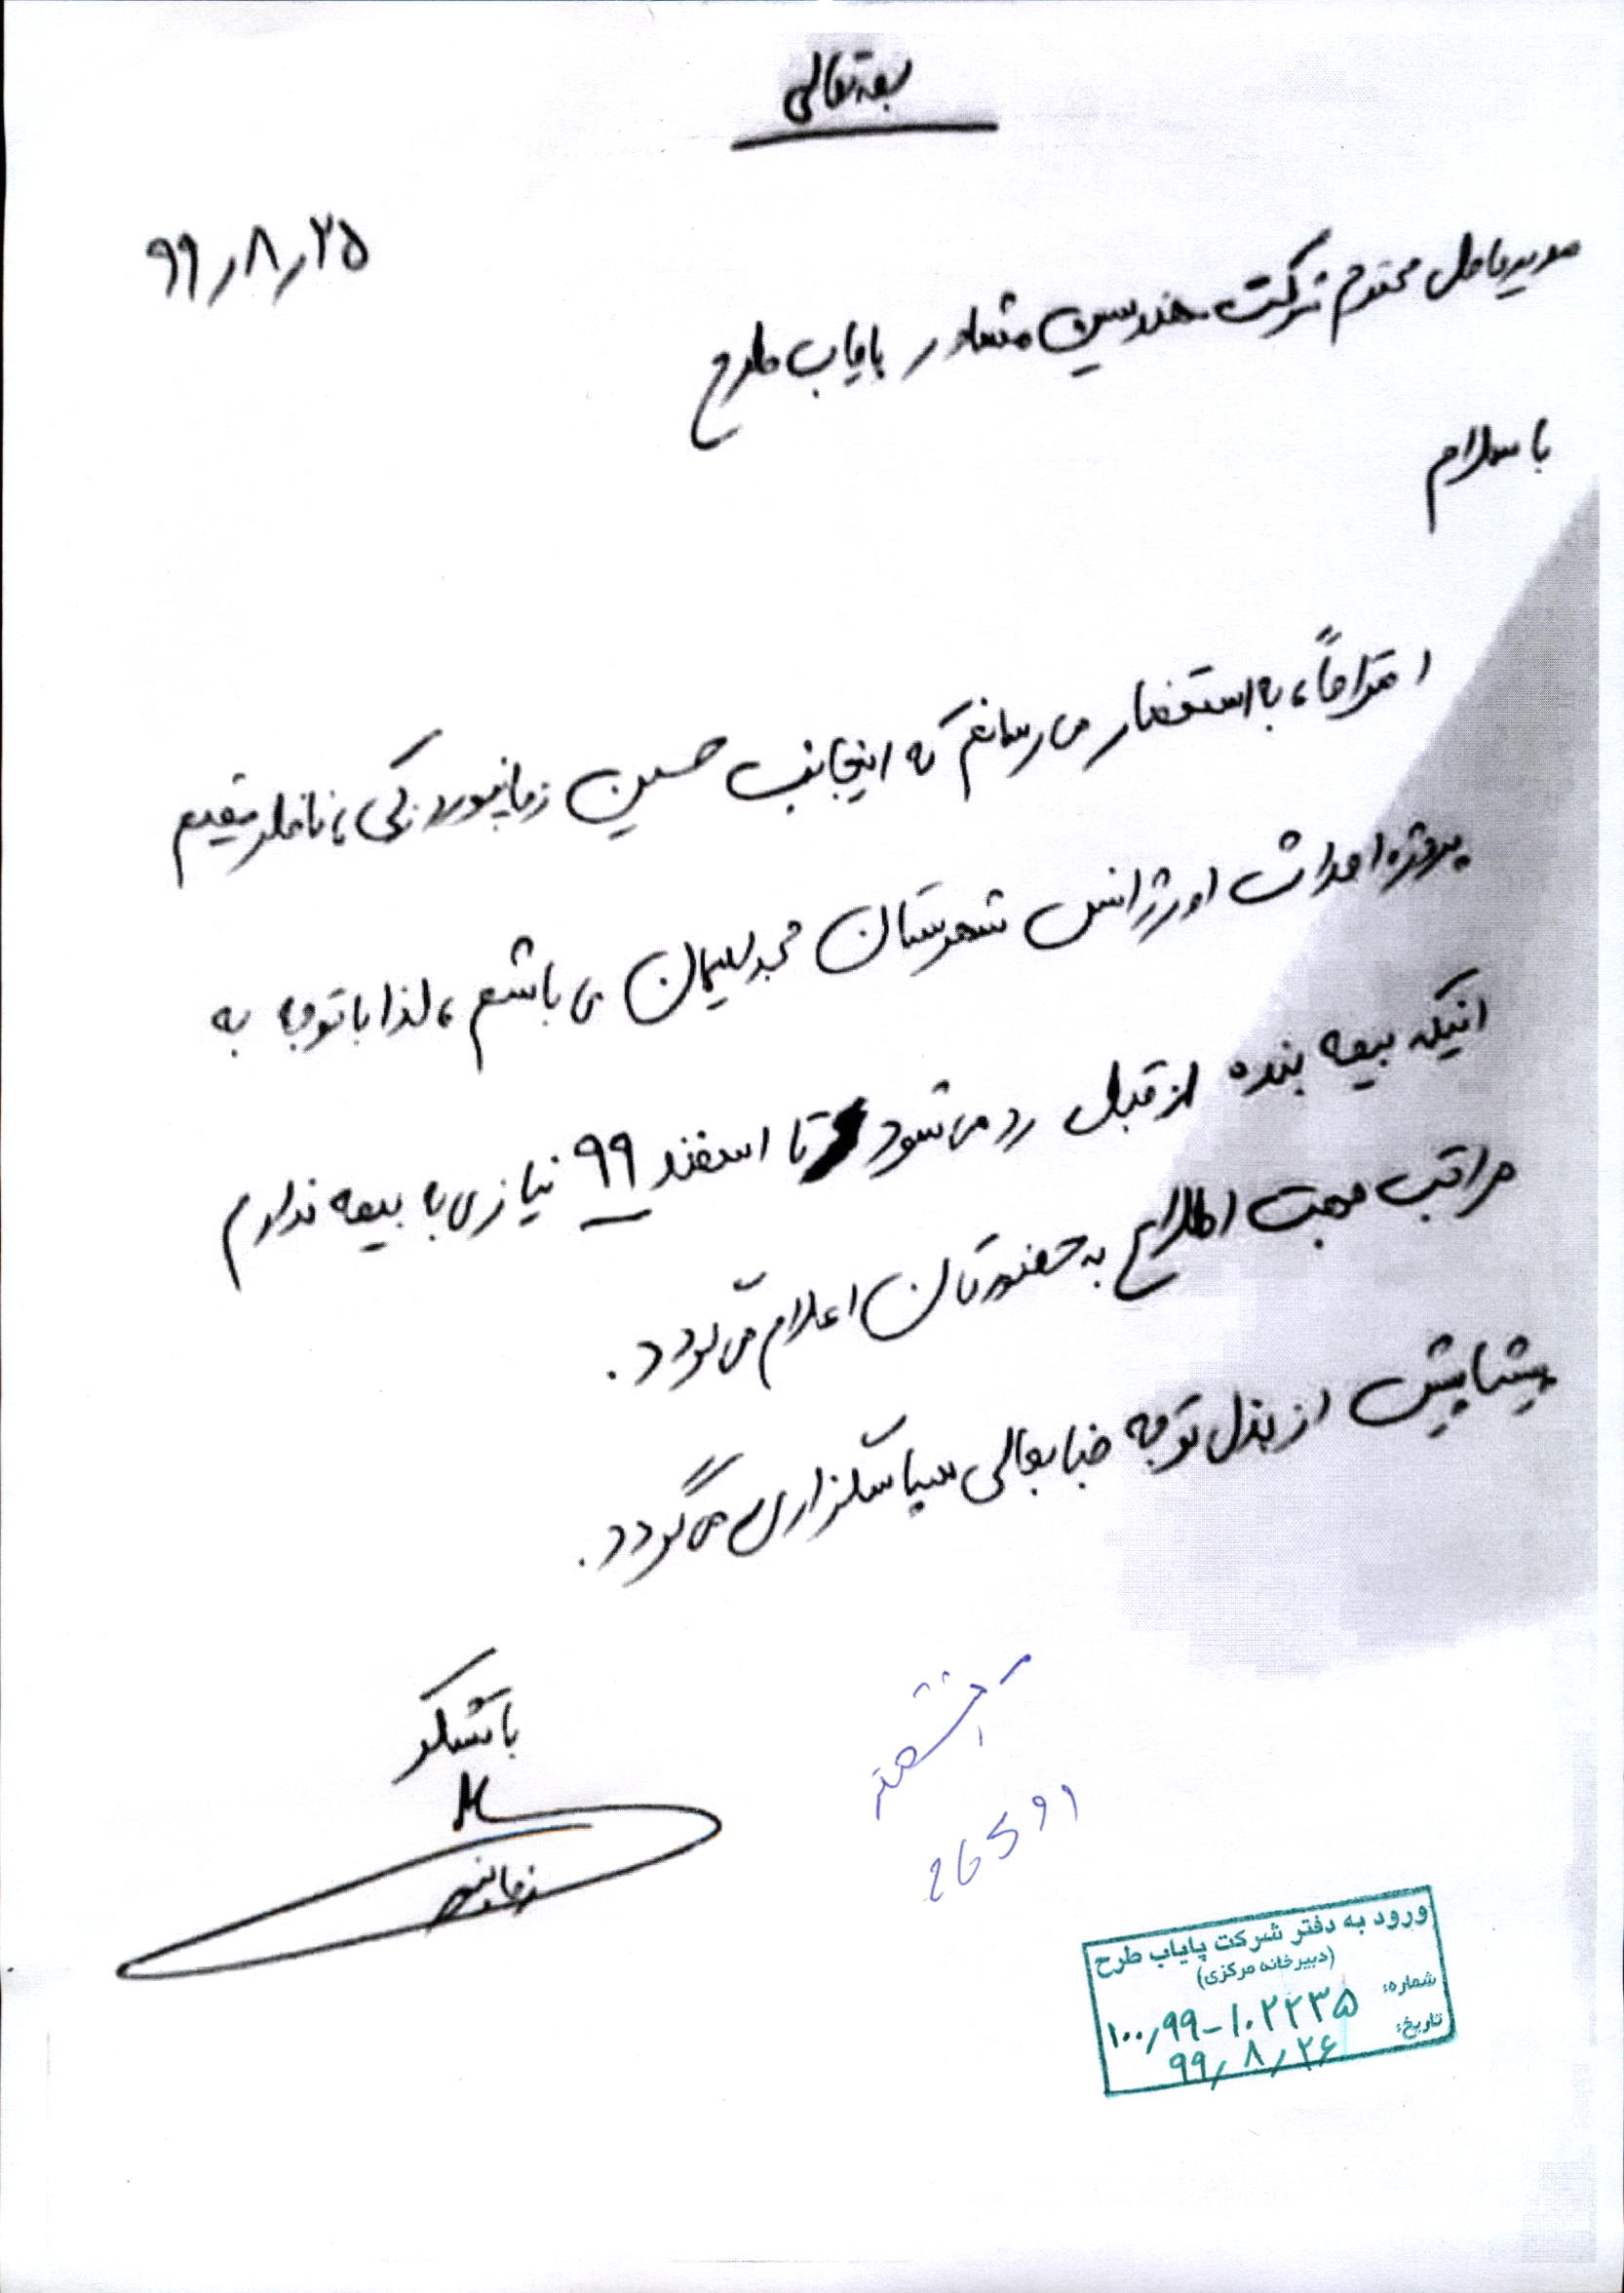 بسمه تعالی
۹۹/۸/۲۵
مدیرعامل محترم شرکت مهندسین مشاور پایاب طرح
با سلام
احتراماً، به استحضار می رسانم که اینجانب حسین زمانپور زکی، ناظر مقیم
پروژه احداث اورژانس شهرستان مسجدسلیمان می باشم، لذا با توجه به
اینکه بیمه بنده از قبل رد می شود تا اسفند ۹۹ نیازی به بیمه ندارم
مراتب جهت اطلاع به حضورتان اعلام می گردد.
پیشاپیش از بذل توجه جنابعالی سپاسگزاری می گردد.
با تشکر
زمانپور
ورود به دفتر شرکت پایاب طرح
(دبیرخانه مرکزی)
شماره: ۱۰۰/۹۹-۱۰۲۲۳۵
تاریخ: ۹۹/۸/۲۶